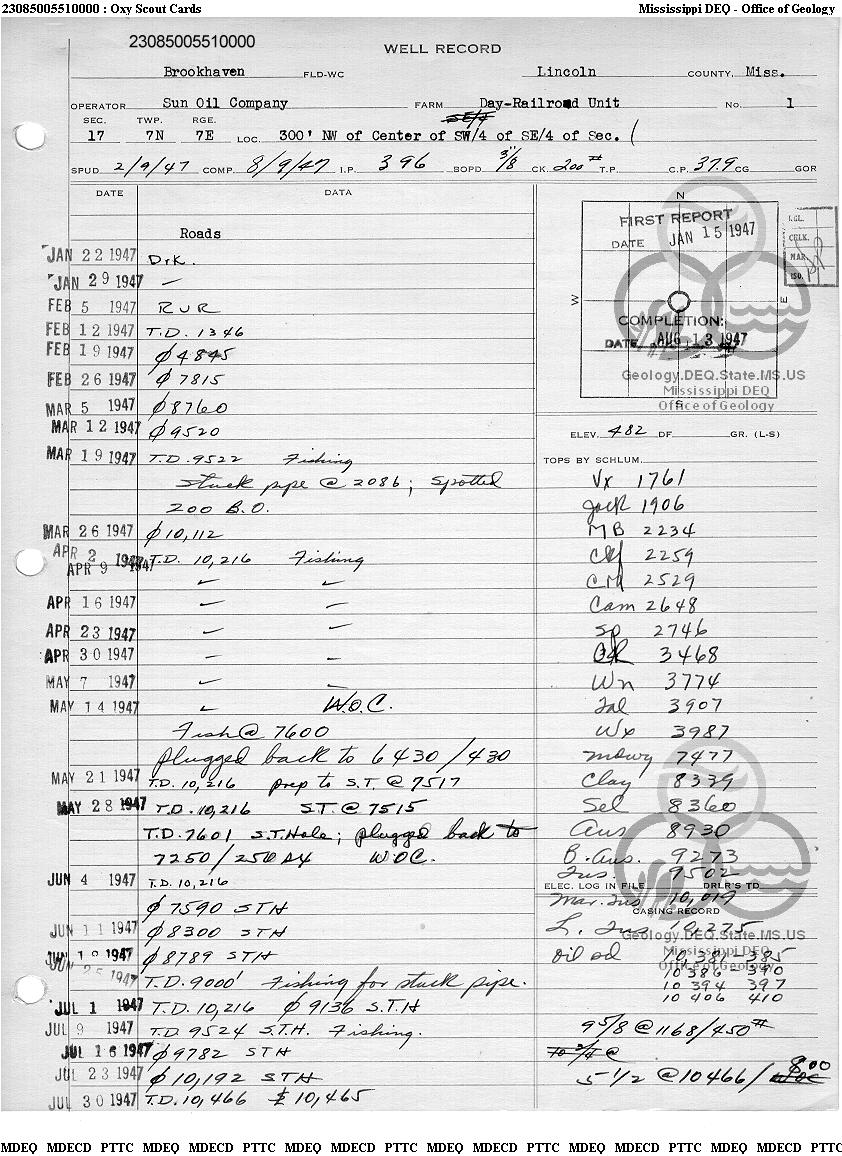 23085005510000 : Oxy Scout Cards
Mississippi DEQ - Office of Geology
23085005510000
WELL RECORD
Brookhaven FLD-WC Lincoln COUNTY, Miss.
OPERATOR Sun Oil Company FARM Day-Railroad Unit No. 1
SEC. TWP. RGE. SE/4
17 7N 7E LOC. 300' NW of Center of SW/4 of SE/4 of Sec. (
SPUD 2/9/47 COMP. 8/9/47 I.P. 396 BOPD 3/8" CK. 200# T.P. C.P. 37.9 CG GOR
DATE DATA
Roads
JAN 22 1947 Drk.
JAN 29 1947 —
FEB 5 1947 RUR
FEB 12 1947 T.D. 1346
FEB 19 1947 ϕ 4845
FEB 26 1947 ϕ 7815
MAR 5 1947 ϕ 8760
MAR 12 1947 ϕ 9520
MAR 19 1947 T.D. 9522 Fishing
Stuck pipe @ 2086; Spotted
200 B.O.
MAR 26 1947 ϕ 10,112
APR 2 1947 T.D. 10,216 Fishing
APR 9 1947
APR 16 1947
APR 23 1947
APR 30 1947
MAY 7 1947
MAY 14 1947 W.O.C.
Fish @ 7600
plugged back to 6430/430
MAY 21 1947 T.D. 10,216 prep to S.T. @ 7517
MAY 28 1947 T.D. 10,216 S.T. @ 7515
T.D. 7601 S.T. Hole; plugged back to
7250/250 WOC.
JUN 4 1947 T.D. 10,216
ϕ 7590 STH
JUN 11 1947 ϕ 8300 STH
JUN 18 1947 ϕ 8789 STH
JUN 25 1947 T.D. 9000' Fishing for stuck pipe.
JUL 1 1947 T.D. 10,216 ϕ 9136 S.T.H
JUL 9 1947 T.D. 9524 S.T.H. Fishing.
JUL 16 1947 ϕ 9782 STH
JUL 23 1947 ϕ 10,192 STH
JUL 30 1947 T.D. 10,466 10,465
N
FIRST REPORT
DATE JAN 15 1947
W E
COMPLETION:
DATE AUG 13 1947
S
LGL.
CHLK.
MAR.
ISO.
Geology.DEQ.State.MS.US
Mississippi DEQ
Office of Geology
ELEV. 482 DF. GR. (L-S)
TOPS BY SCHLUM.
Vx 1761
Jack 1906
MB 2234
2259
CM 2529
Cam 2648
Sp 2746
3468
Wn 3774
3907
Wx 3987
Mdwy 7477
Clay 8339
Sel 8360
Aus 8930
B. Aus. 9273
Tus. 9502
ELEC. LOG IN FILE DRLR'S TD
Mar. Tus 10,019
CASING RECORD
L. Tus 10,275
Geology.DEQ.State.MS.US
Mississippi DEQ
Office of Geology
Oil sd 10,381-385
10 386-390
10 394 397
10 406 410
9 5/8 @ 1168/450#
10 3/4 @
5 1/2 @ 10466/800
WOC
MDEQ MDECD PTTC MDEQ MDECD PTTC MDEQ MDECD PTTC MDEQ MDECD PTTC MDEQ MDECD PTTC MDEQ MDECD PTTC